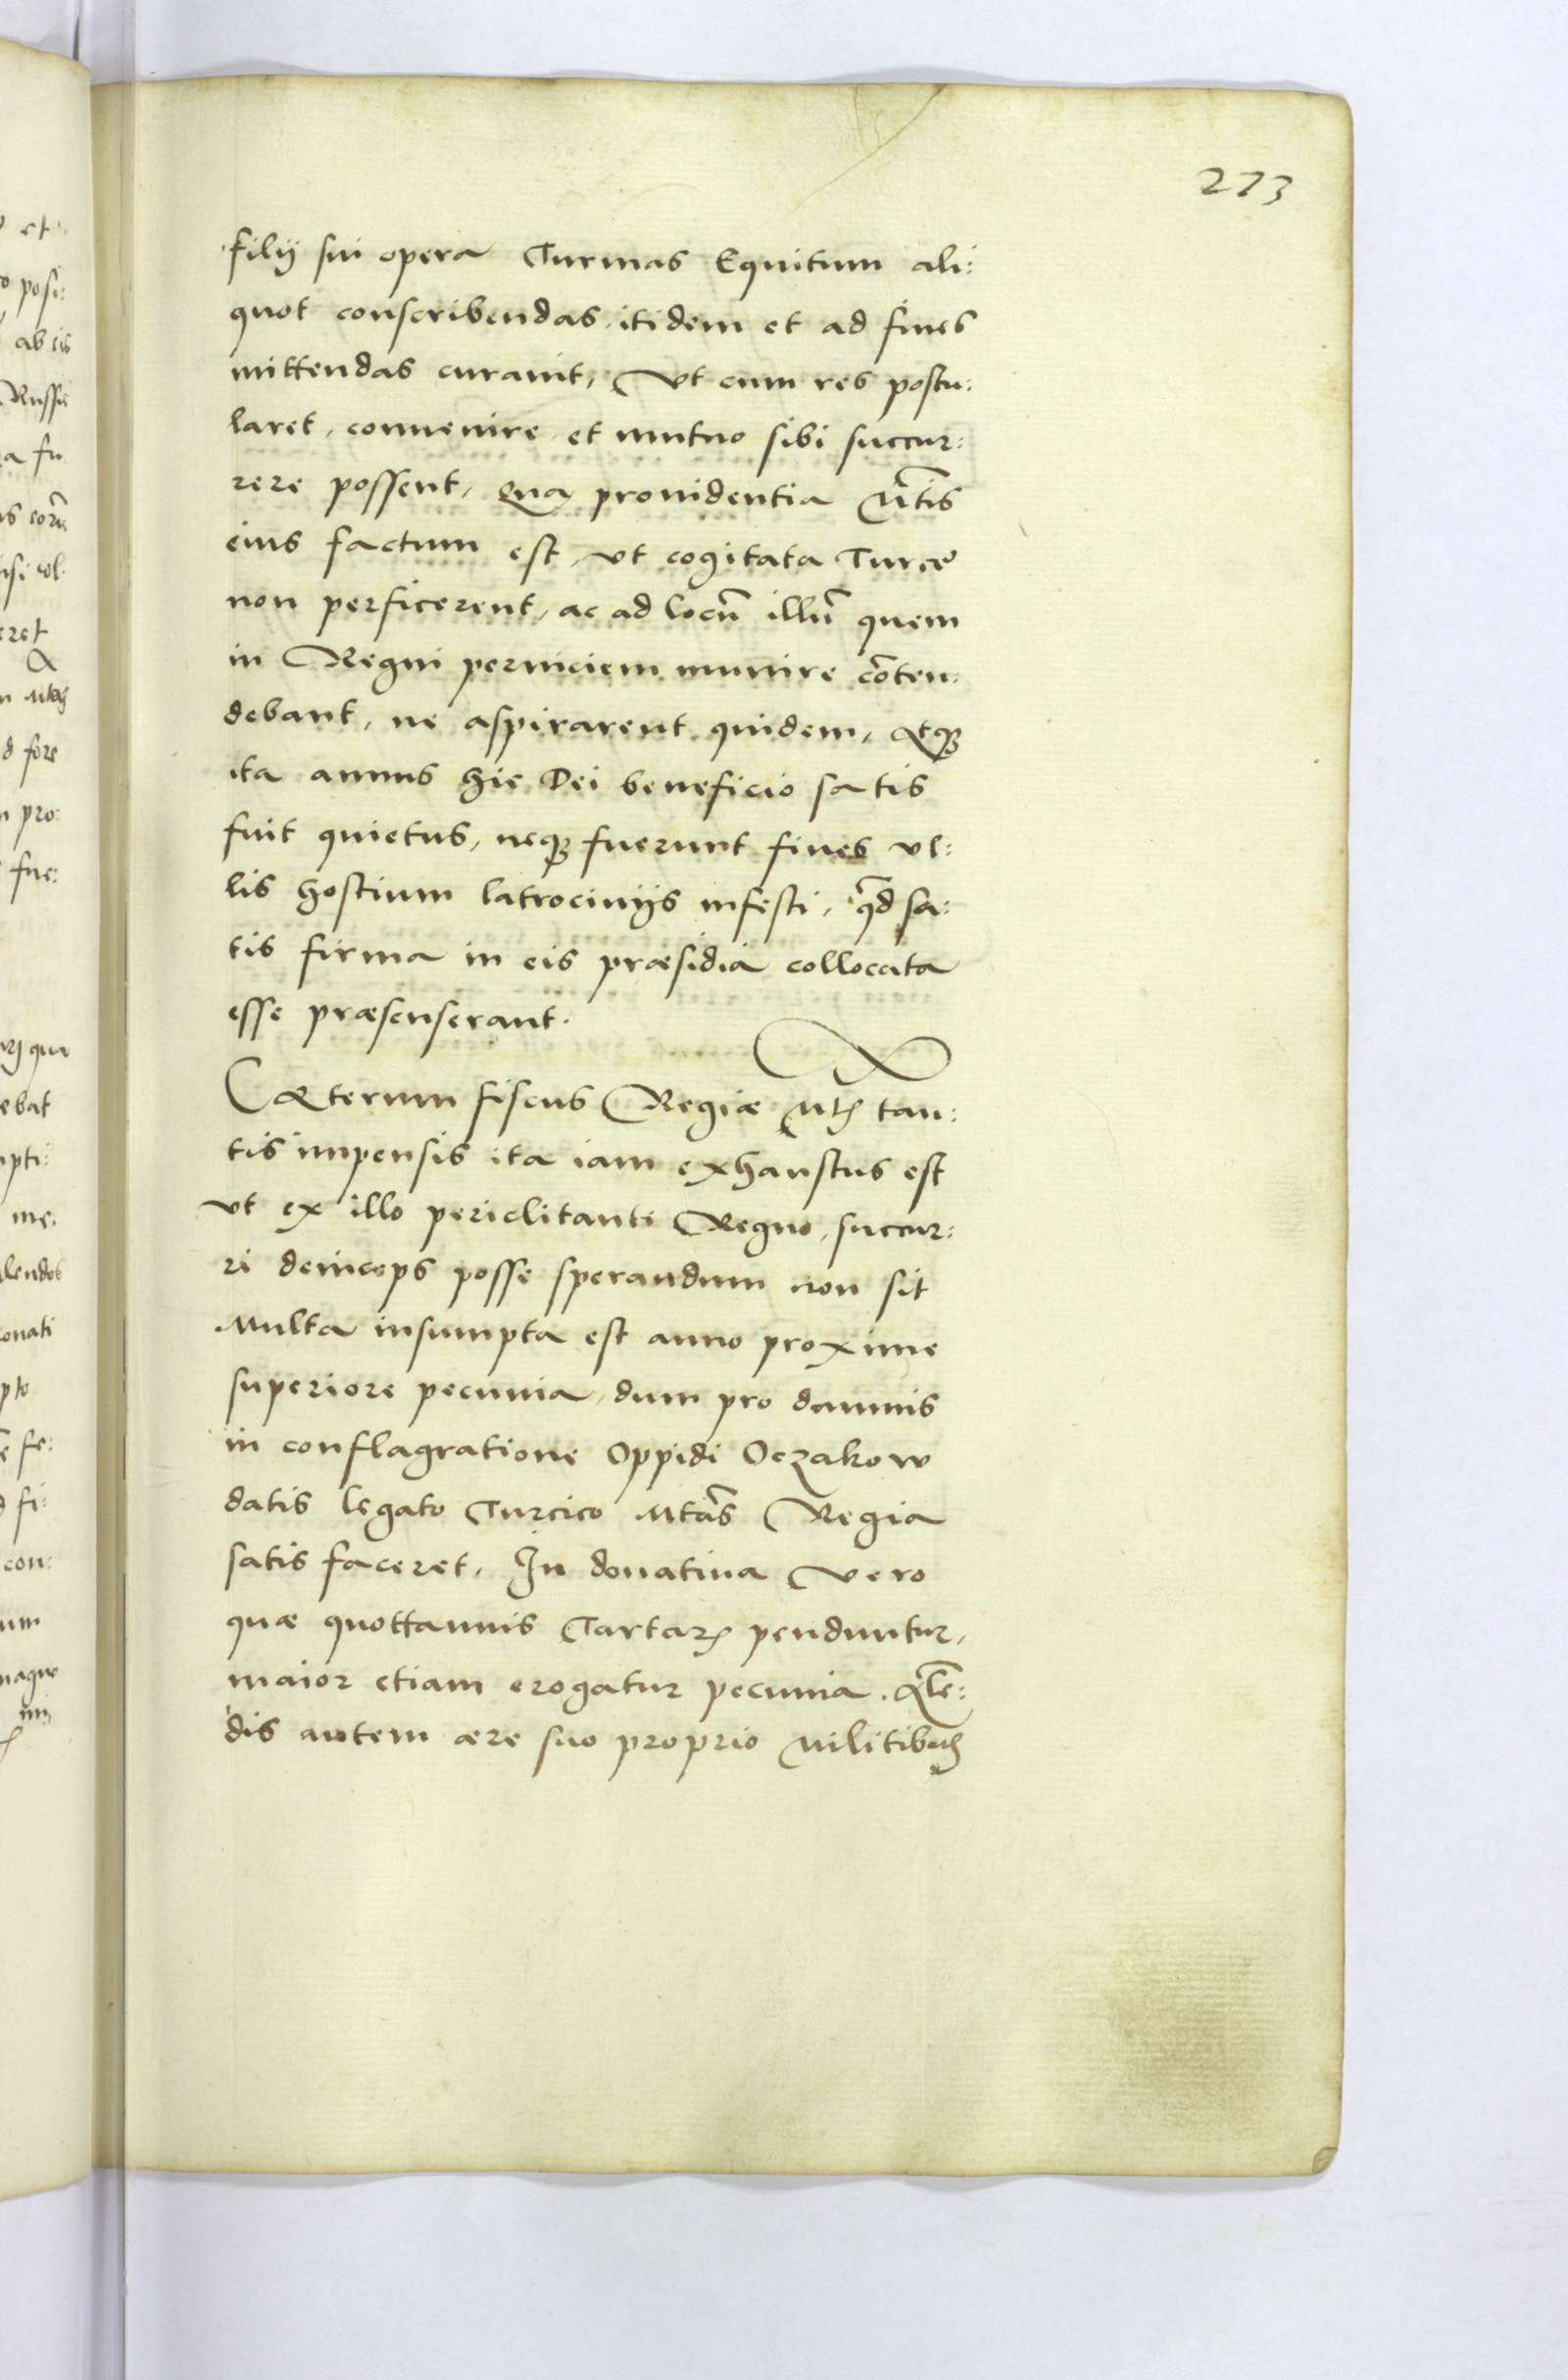 273
filij sui opera Turmas Equitum ali:
quot conscribendas, itidem et ad fines
mittendas curauit, Vt cum res postu:
laret, conuenire et mutuo sibi succur:
rere possent, Qua prouidentia Mtis
eius factum est, vt cogitata Turcę
non perficerent, ac ad locū illū quem
in Regni perniciem munire cōten:
debant, ne aspirarent quidem, Atqȝ
ita annus hic Dei beneficio satis
fuit quietus, neqȝ fuerunt fines vl:
lis hostium latrocinijs infesti, qd sa:
tis firma in eis præsidia collocata
esse præsenserant.
Cæterum fiscus Regiæ Mtis tan:
tis impensis ita iam exhaustus est
vt ex illo periclitanti Regno, succur:
ri deinceps posse sperandum non sit
Multa insumpta est anno proxime
superiore pecunia, dum pro damnis
in conflagratione Oppidi Oczakow
datis legato Turcico Mtas Regia
satis faceret, In donatiua vero
quæ quottannis Tartaris penduntur,
maior etiam erogatur pecunia. Alē:
dis autem ære suo proprio Militibus